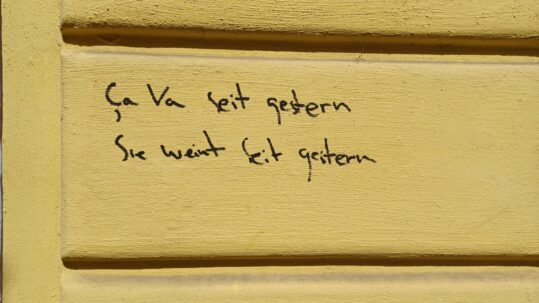 Ça Va seit gestern
Sie weint seit gestern